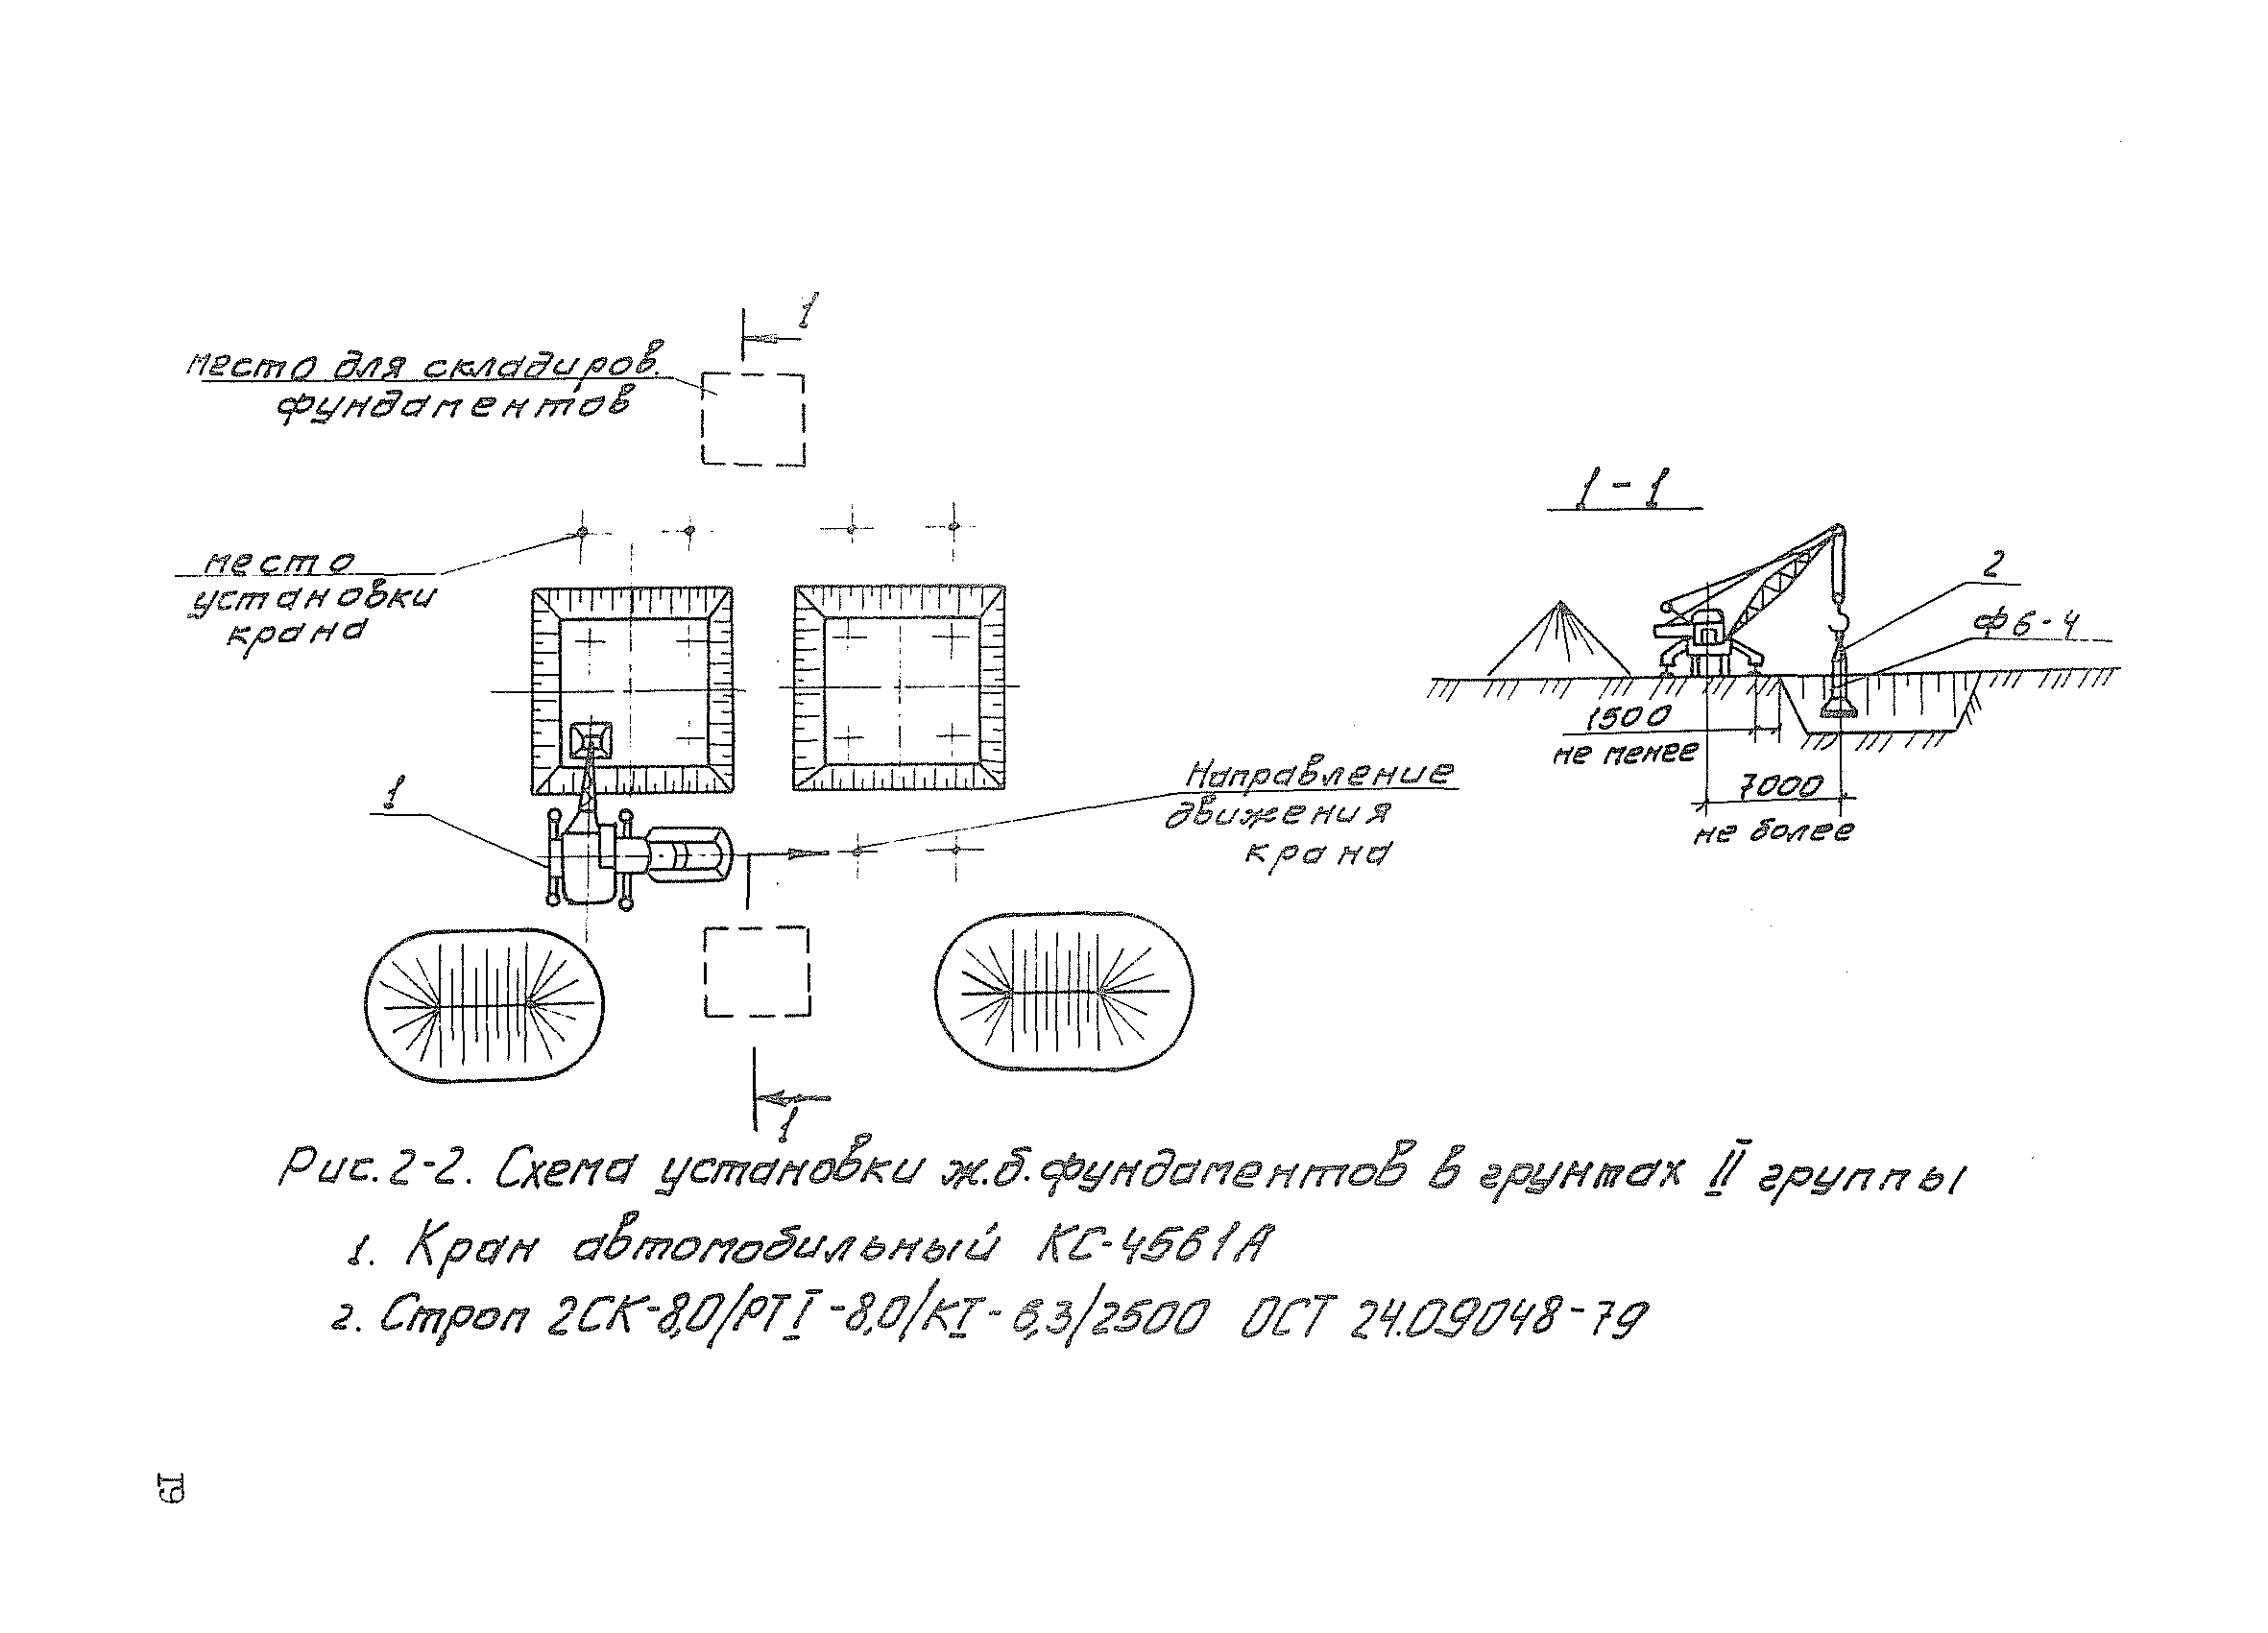 1
место для складиров.
фундаментов
1-1
место
установки
крана
2
Ф6-4
1500
не менее
7000
не более
1
Направление
движения
крана
1
Рис. 2-2. Схема установки ж.б. фундаментов в грунтах II группы
1. Кран автомобильный КС-4561А
2. Строп 2СК-8,0/РТI-8,0/КТ-6,3/2500 ОСТ 24.09048-79
19